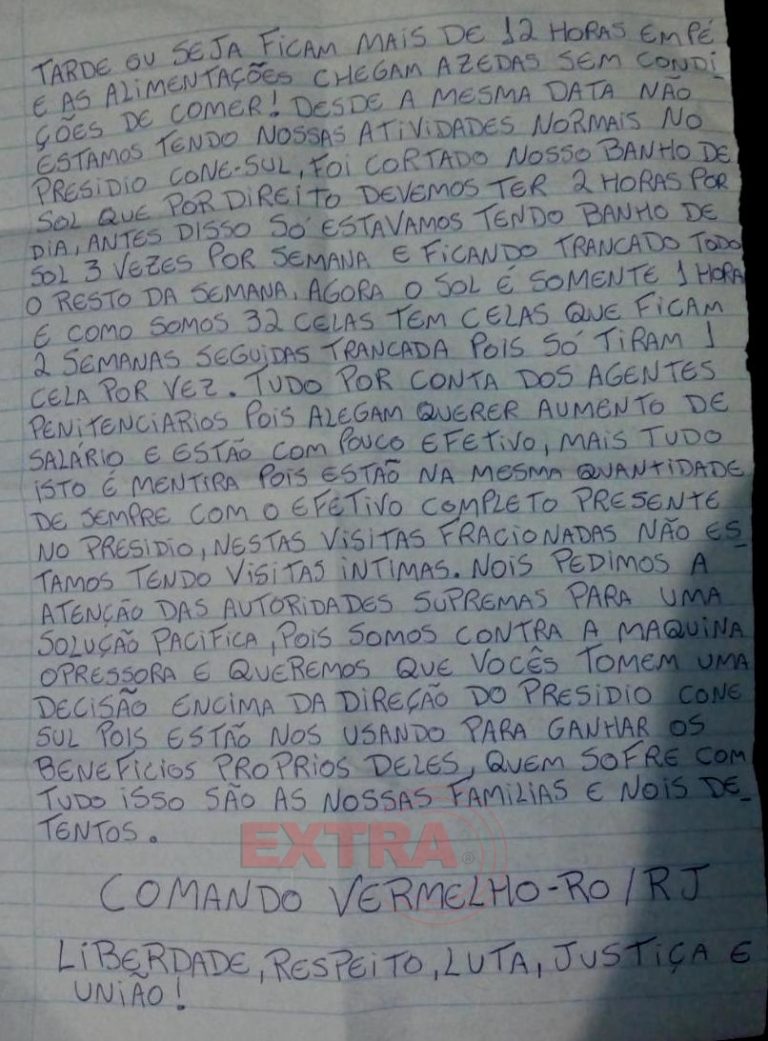 TARDE OU SEJA FICAM MAIS DE 12 HORAS EM PÉ
E AS ALIMENTAÇÕES CHEGAM AZEDAS SEM CONDI-
ÇÕES DE COMER! DESDE A MESMA DATA NÃO
ESTAMOS TENDO NOSSAS ATIVIDADES NORMAIS NO
PRESIDIO CONE-SUL, FOI CORTADO NOSSO BANHO DE
SOL QUE POR DIREITO DEVEMOS TER 2 HORAS POR
DIA, ANTES DISSO SÓ ESTAVAMOS TENDO BANHO DE
SOL 3 VEZES POR SEMANA E FICANDO TRANCADO TODO
O RESTO DA SEMANA. AGORA O SOL É SOMENTE 1 HORA
E COMO SOMOS 32 CELAS TEM CELAS QUE FICAM
2 SEMANAS SEGUIDAS TRANCADA POIS SÓ TIRAM 1
CELA POR VEZ. TUDO POR CONTA DOS AGENTES
PENITENCIARIOS POIS ALEGAM QUERER AUMENTO DE
SALÁRIO E ESTÃO COM POUCO EFETIVO, MAIS TUDO
ISTO É MENTIRA POIS ESTÃO NA MESMA QUANTIDADE
DE SEMPRE COM O EFETIVO COMPLETO PRESENTE
NO PRESIDIO, NESTAS VISITAS FRACIONADAS NÃO ES_
TAMOS TENDO VISITAS INTIMAS. NOIS PEDIMOS A
ATENÇÃO DAS AUTORIDADES SUPREMAS PARA UMA
SOLUÇÃO PACIFICA, POIS SOMOS CONTRA A MAQUINA
OPRESSORA E QUEREMOS QUE VOCÊS TOMEM UMA
DECISÃO ENCIMA DA DIREÇÃO DO PRESIDIO CONE
SUL POIS ESTÃO NOS USANDO PARA GANHAR OS
BENEFICIOS PROPRIOS DELES, QUEM SOFRE COM
TUDO ISSO SÃO AS NOSSAS FAMILIAS E NOIS DE_
TENTOS.
EXTRA®
COMANDO VERMELHO-RO/RJ
LIBERDADE, RESPEITO, LUTA, JUSTIÇA E
UNIÃO!